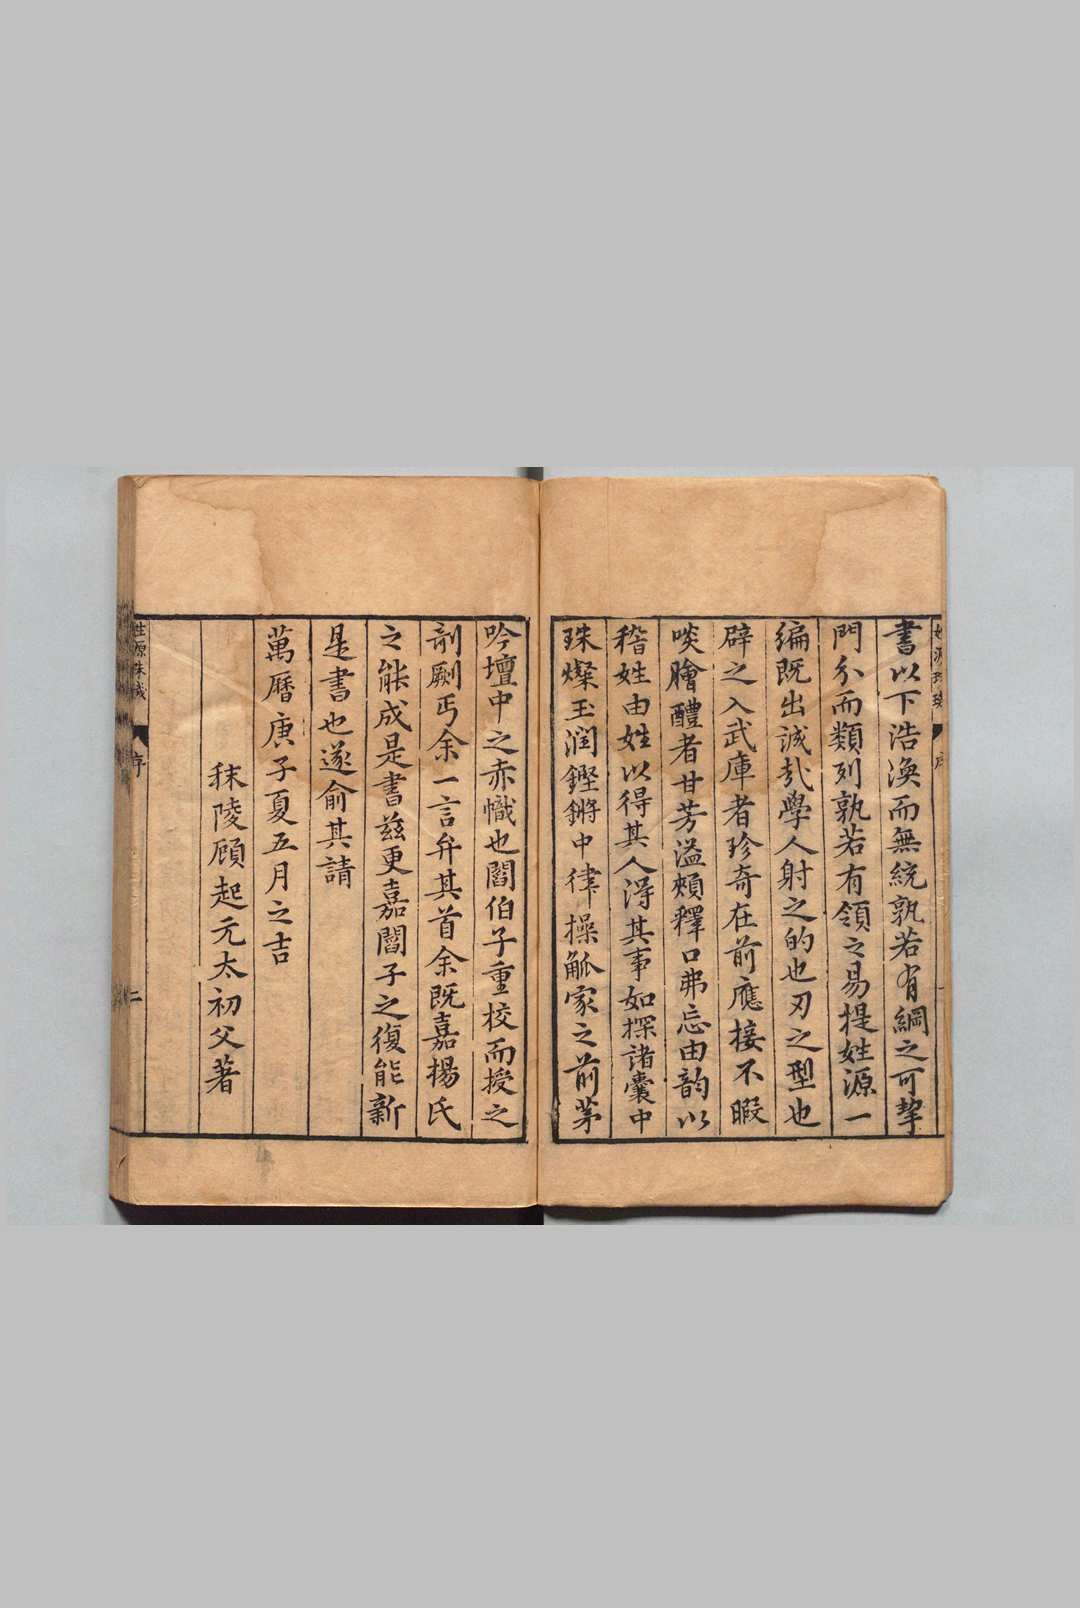 書以下浩渙而無統孰若有綱之可挈
門分而類列孰若有領之易提姓源一
編既出誠哉學人射之的也刃之型也
辟之入武庫者珍奇在前應接不暇
啖膾醴者甘芳溢頰釋口弗忘由韵以
稽姓由姓以得其人得其事如探諸囊中
珠燦玉潤鏗鏘中律操觚家之前茅
吟壇中之赤幟也閻伯子重校而授之
剞劂丐余一言弁其首余既嘉楊氏
之能成是書茲更嘉閻子之復能新
是書也遂俞其請
萬曆庚子夏五月之吉
秣陵顧起元太初父著
姓源珠璣
序
二